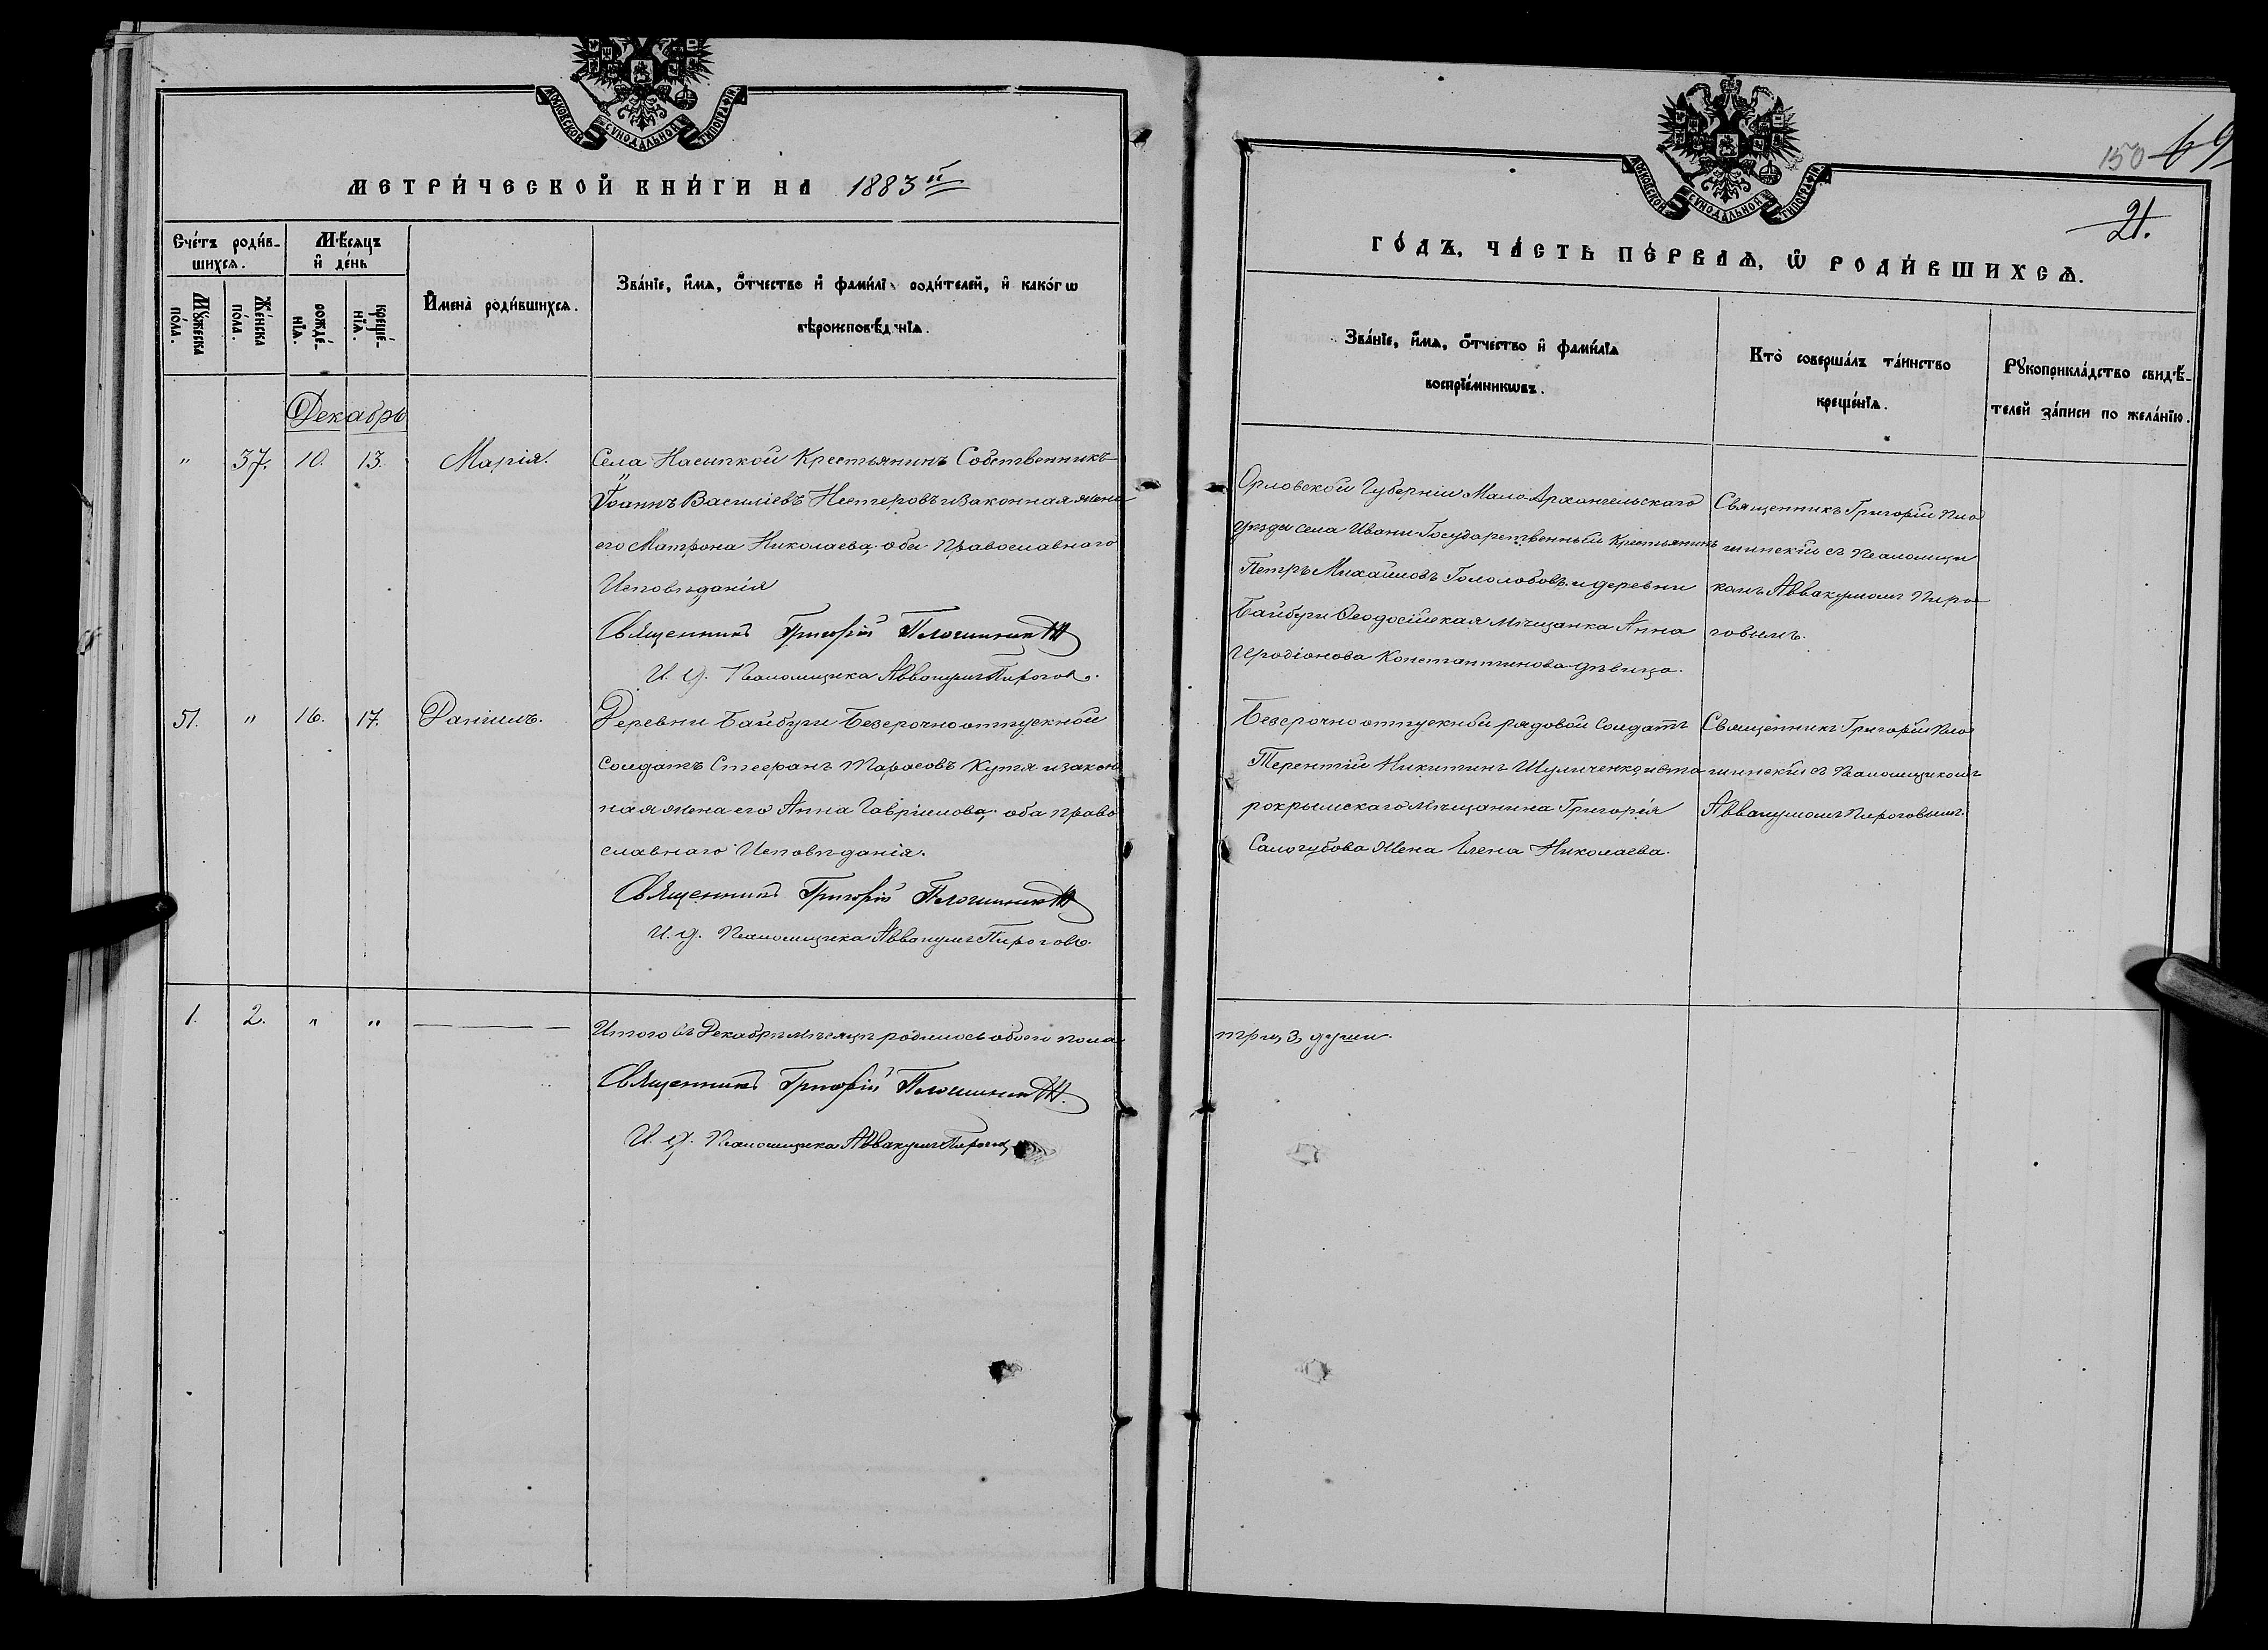 МОСКОВСКОЙ СѴНОДАЛЬНОЙ ТИПОГРАФІИ
МЕТРИ́ЧЕСКОЙ КНИ́ГИ НА 1883й
Сче́тъ роди́в-
шихсѧ.
Мѣ́сѧцъ
и҆ де́нь
Мꙋжеска по́ла.
Же́нска по́ла.
рожде́-
нїѧ.
креще́-
нїѧ.
И҆мена̀ роди́вшихсѧ.
Зва́нїе, и҆́мѧ, ѻ҆́тчество и҆ фами́лї роди́телей, и҆ како́гѡ
вѣроисповѣ́данїѧ.
Декабрь
" 37. 10. 13. Марія.
Села Насыпкой Крестьянинъ Собственникъ
Іоаннъ Василіевъ Нестеровъ и законная жена
его Матрона Николаева оба Православнаго
Исповѣданія
Священникъ Григорій
И. д. Псаломщика Аввакумъ Пироговъ.
51. " 16. 17. Даніилъ.
Деревни Байбуги Безсрочноотпускной
Солдатъ Стефанъ Тарасовъ Кутя и закон
ная жена его Анна Гавріилова, оба право
славнаго Исповѣданія.
Священникъ Григорій
И. д. Псаломщика Аввакумъ Пироговъ.
1. 2. " "
Итого въ Декабрѣ мѣсяцѣ родилось обоего пола
Священникъ Григорій
И. д. Псаломщика Аввакумъ
МОСКОВСКОЙ СѴНОДАЛЬНОЙ ТИПОГРАФІИ
150 69
21.
ГО́ДЪ, ЧА́СТЬ ПЕ́РВАѦ, Ѡ҆ РОДИ́ВШИХСѦ.
Зва́нїе, и҆́мѧ, ѻ҆́тчество и҆ фами́лїѧ
воспрїе́мникѡвъ.
Кто̀ соверша́лъ та́инство
креще́нїѧ.
Рꙋкоприкла́дство свидѣ́-
телей за́писи по жела́нїю.
Орловской Губерніи Мало Архангельскаго
уѣзда села Ивани Государственный Крестьянинъ
Петръ Михаиловъ Гололобовъ и деревни
Байбуги Ѳеодосійская мѣщанка Анна
Иродіонова Константинова дѣвица.
Священникъ Григорій Пло
шинскій съ Псаломщи
комъ Аввакумомъ Пиро
говымъ.
Безсрочноотпускной рядовой Солдатъ
Терентій Никитинъ Шуличенко и ста
рокрымскаго Мѣщанина Григорія
Салогубова Жена Елена Николаева.
Священникъ Григорій Пло
шинскій съ Псаломщикомъ
Аввакумомъ Пироговымъ.
три, 3, души.